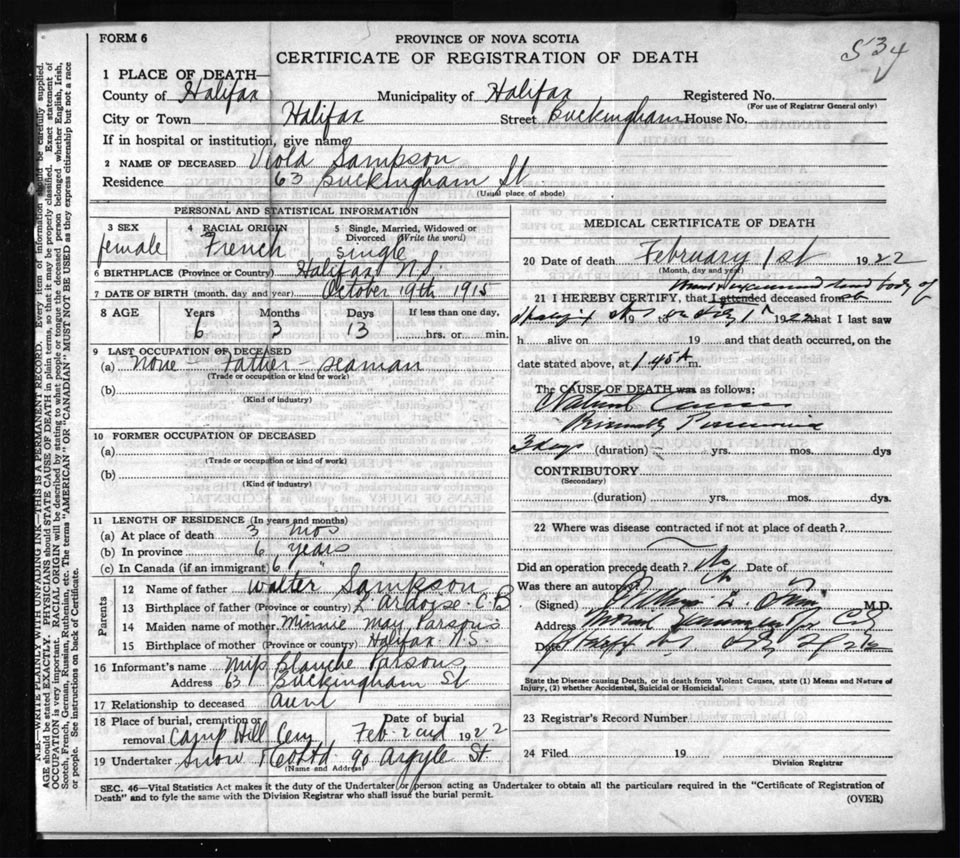 FORM 6
PROVINCE OF NOVA SCOTIA
CERTIFICATE OF REGISTRATION OF DEATH
534
1 PLACE OF DEATH—
County of Halifax Municipality of Halifax Registered No.
(For use of Registrar General only)
City or Town Halifax Street Buckingham House No.
If in hospital or institution, give name
2 NAME OF DECEASED Viola Sampson
Residence 63 Buckingham St
(Usual place of abode)
PERSONAL AND STATISTICAL INFORMATION
3 SEX 4 RACIAL ORIGIN 5 Single, Married, Widowed or
Divorced (Write the word)
female French single
6 BIRTHPLACE (Province or Country) Halifax N.S.
7 DATE OF BIRTH (month, day and year) October 19th 1915
8 AGE Years Months Days If less than one day,
6 3 13 hrs. or min.
9 LAST OCCUPATION OF DECEASED
(a) none Father seaman
(Trade or occupation or kind of work)
(b)
(Kind of industry)
10 FORMER OCCUPATION OF DECEASED
(a)
(Trade or occupation or kind of work)
(b)
(Kind of industry)
11 LENGTH OF RESIDENCE (In years and months)
(a) At place of death 3 mos
(b) In province 6 years
(c) In Canada (if an immigrant) 6 "
Parents
12 Name of father Walter Sampson
13 Birthplace of father (Province or country) L'Ardoise C.B
14 Maiden name of mother Minnie May Parsons
15 Birthplace of mother (Province or country) Halifax N.S.
16 Informant's name Miss Blanche Parsons
Address 63 Buckingham St
17 Relationship to deceased aunt
18 Place of burial, cremation or Date of burial
removal Camp Hill Cem Feb. 2nd 1922
19 Undertaker Snow & Co Ltd 90 Argyle St
(Name and Address)
MEDICAL CERTIFICATE OF DEATH
20 Date of death February 1st 1922
(Month, day and year)
dead body of
21 I HEREBY CERTIFY, that I attended deceased from
19 to 1922 that I last saw
h alive on 19 and that death occurred, on the
date stated above, at 1.45 A m.
The CAUSE OF DEATH was as follows:
Natural Causes
3 days (duration) yrs. mos. dys
CONTRIBUTORY
(Secondary)
(duration) yrs. mos. dys.
22 Where was disease contracted if not at place of death?
Did an operation precede death? No Date of
Was there an autopsy? No
(Signed) M.D.
Address
Date
State the Disease causing Death, or in death from Violent Causes, state (1) Means and Nature of
Injury, (2) whether Accidental, Suicidal or Homicidal.
23 Registrar's Record Number
24 Filed 19
Division Registrar
SEC. 46—Vital Statistics Act makes it the duty of the Undertaker or person acting as Undertaker to obtain all the particulars required in the "Certificate of Registration of
Death" and to fyle the same with the Division Registrar who shall issue the burial permit.
(OVER)
N.B.—WRITE PLAINLY WITH UNFADING INK—THIS IS A PERMANENT RECORD. Every item of information should be carefully supplied.
AGE should be stated EXACTLY. PHYSICIANS should STATE CAUSE OF DEATH in plain terms, so that it may be properly classified. Exact statement of
OCCUPATION is very important. RACIAL ORIGIN will be described by stating to what people or tongue the deceased person belonged whether English, Irish,
Scotch, French, German, Russian, Ruthenian, etc. The terms "AMERICAN" OR "CANADIAN" MUST NOT BE USED as they express citizenship but not a race
or people. See instructions on back of Certificate.